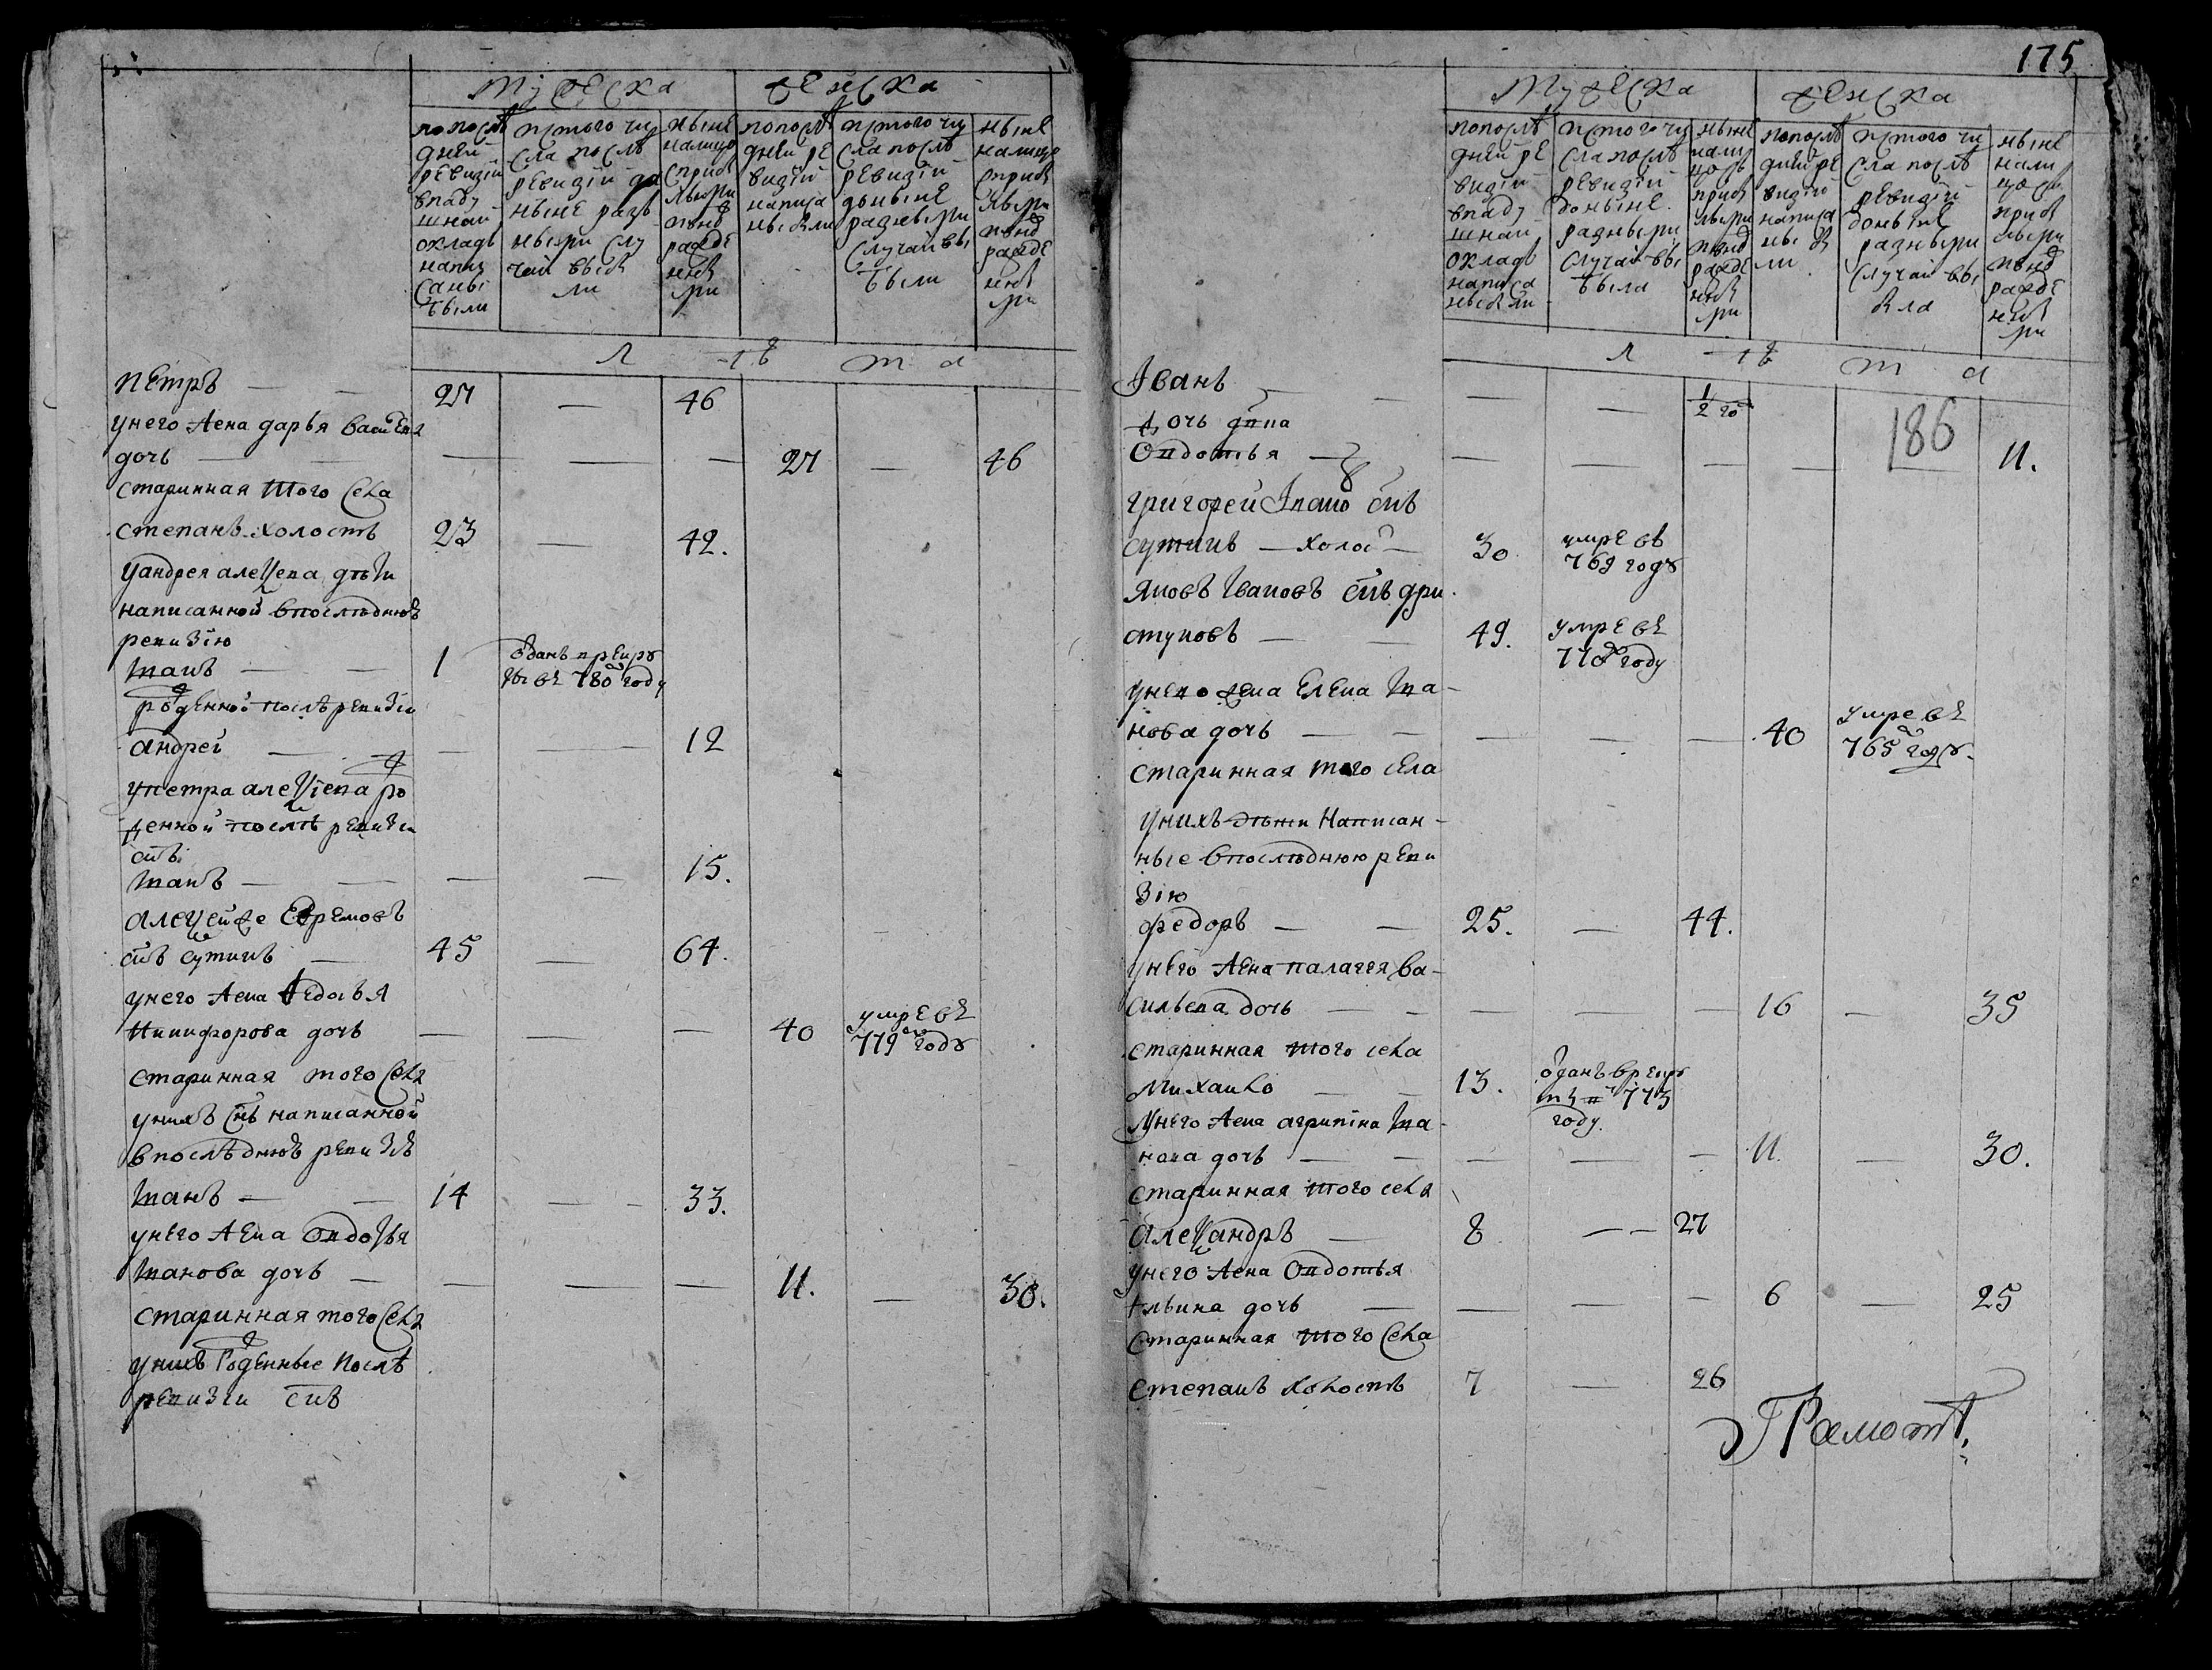 175
Мужеска женска
попослѣ
дней
ревизіи
вподу
шной
окладъ
напи
саны
были
исътого чи
сла послѣ
ревизіи до
ныне разъ
ными слу
чаи выбы
ли
ныне
налицо
сприбы
лыми
рожде
ными
попослѣ
дней ре
визіи
написа
ны были
исътого чи
сла послѣ
ревизіи
доныне
разными
случаи вы
были
ныне
налицо
сприбы
лыми
рожде
ными
лѣта
Петръ — 27 — 46
унего жена дарья васильева
дочь — — — — 27 — 46
старинная того села
степанъ холостъ 23 — 42.
уандрея алексеева дѣти
написанной впослѣднюю
ревизію
Иванъ — 1 отданъ врекру
ты въ 780 году
рожденной послѣ ревизіи
андрей — — — 12
упетра алексіева ро
жденной послѣ ревизіи
снъ
Иванъ — — — 15.
алексей же Ефремовъ
снъ сутинъ — 45 — 64.
унего жена Федосья
Никифорова дочь — — — 40 умре въ
779 году
старинная того села
унихъ снъ написанной
впослѣднюю ревизію
Иванъ — 14 — 33.
унего жена Овдотья
Иванова дочь — — — — 11. — 30.
старинная того села
унихъ Рожденные послѣ
ревизіи снъ
Мужеска женска
попослѣ
дней ре
визіи
вподу
шной
окладъ
написа
ны были
исътого чи
сла послѣ
ревизіи
доныне
разными
случаи вы
была
ныне
нали
цо съ
прибы
лыми
рожде
ными
попослѣ
дней ре
визіи
написа
ны бы
ли
исътого чи
сла послѣ
ревизіи
доныне
разными
случаи вы
была
ныне
нали
цо съ
прибы
лыми
рожде
ными
лѣта
Іванъ — — — 1/2 го
186
дочь
Овдотья — — — — — 11.
григорей Івановъ снъ
сутинъ — холос — 30 умре въ
769 году
Яковъ Івановъ снъ
ступовъ — 49. умре въ
770 году
унево жена Елена Ива-
нова дочь — — — — 40 умре въ
765 году.
старинная того села
унихъ дѣти Написан-
ные впослѣднюю реви
зію
федоръ — 25. — 44.
унего жена палагея ва-
сильева дочь — — — — 16 — 35
старинная того села
Михаило — 13. отданъ врекру
ты в 773
году.
унего жена агрипіна Ива-
нова дочь — — — — 11. — 30.
старинная того села
Александръ — 8 — 27
унего жена Овдотья
Ильина дочь — — — — 6 — 25
старинная того села
степанъ холостъ 7 — 26